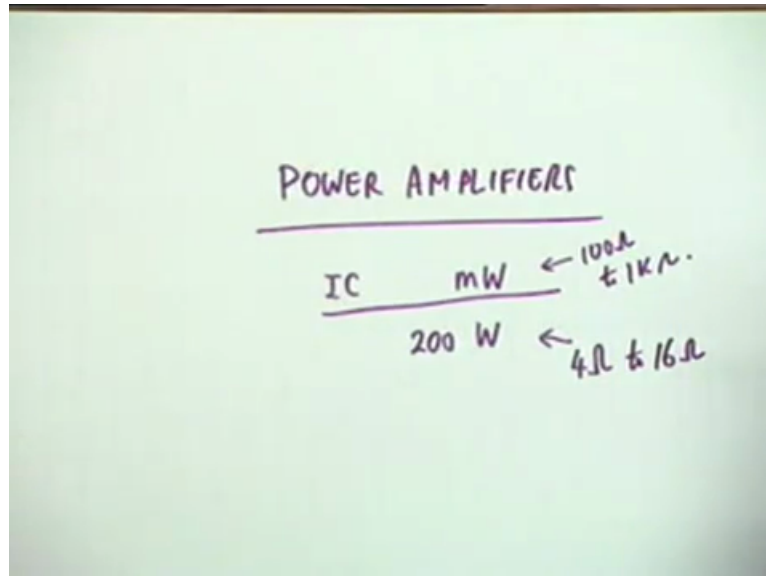 POWER AMPLIFIERS
IC mW ← 100Ω
to 1KΩ.
200 W ← 4Ω to 16Ω